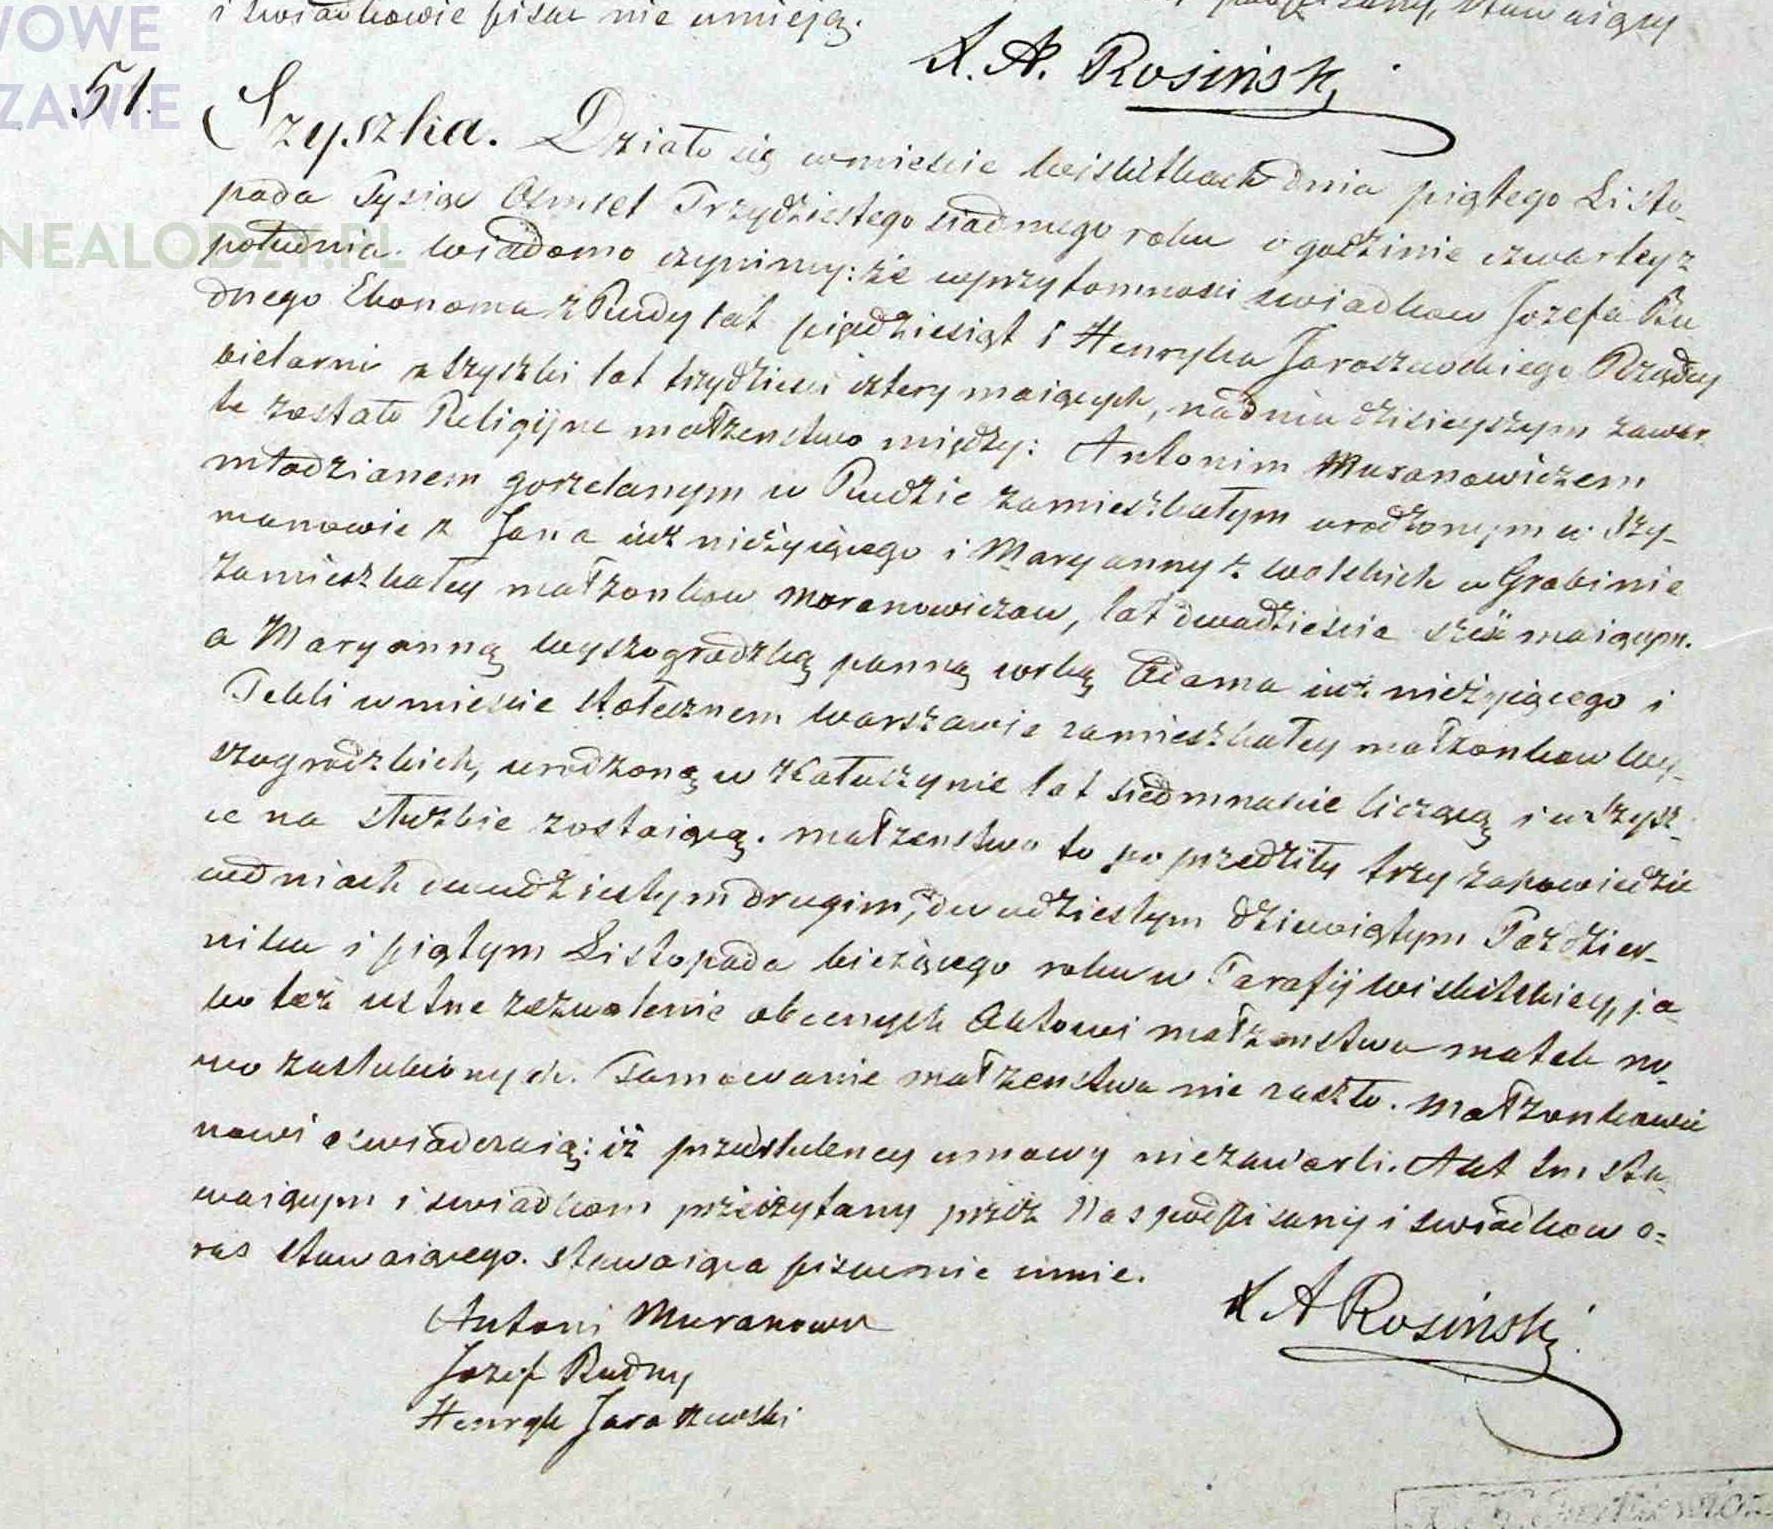 i swiadkowie pisać nie umieją.
X. A. Rosiński
51.
Szyszka. Działo się w mieście Wiskitkach dnia piątego Listo-
pada Tysiąc Osmset Trzydziestego siodmego roku o godzinie czwartey z
południa. Wiadomo czynimy: że w przytomności swiadkow Jozefa Ru
dnego Ekonoma z Rudy lat pięćdziesiąt i Henryka Jaraszewskiego Rządcy
z Szyszki lat trzydzieści cztery maiących, na dniu dzisieyszym zawar-
te zostało Religijne małżeństwo między: Antonim Muranowiczem
młodzianem gorzelanym w Rudzie zamieszkałym urodzonym w Szy-
manowie z Jana iuż nieżyiącego i Maryanny z Wolskich w Grabinie
zamieszkałey małżonkow Moranowiczow, lat dwadzieścia sześć maiącym.
a Maryanną Wyszogrodzką panną corką Adama iuż nieżyiącego i
Tekli w mieście stołecznem Warszawie zamieszkałey małżonkow Wy-
szogrodzkich, urodzoną w Kałuszynie lat siedmnaście liczącą i w Szysz-
ce na służbie zostaiącą. Małżeństwo to poprzedziły trzy zapowiedzie
w dniach dwudziestym drugim, dwudziestym dziewiątym Paździer-
nika i piątym Listopada bieżącego roku w Parafij Wiskitskiey, ja-
ko też ustne zezwolenie obecnych Aktowi małżeństwa matek no-
wo zaslubionych. Tamowanie małżeństwa nie zaszło. Małżonkowie
nowi oswiadczaią: iż przedslubney umowy niezawarli. Akt ten sta-
waiącym i swiadkom przeczytany przez Nas podpisany i swiadkow o=
raz stawaiącego. Stawaiąca pisać nie umie.
X A Rosiński
Antoni Muranowi
Jozef Rudny
Henryk Jaraszewski